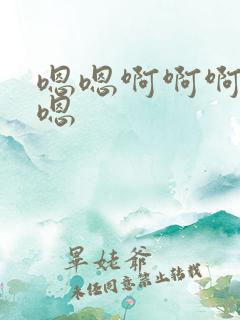 嗯嗯啊啊啊
嗯
晕姥爷
未经同意禁止转载